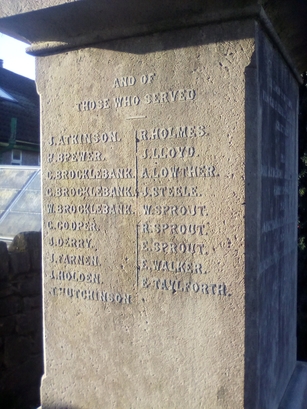 AND OF
THOSE WHO SERVED
J. ATKINSON.
H. BREWER.
C. BROCKLEBANK.
C. BROCKLEBANK.
W. BROCKLEBANK.
C. COOPER.
J. DERRY.
J. FARNEN.
J. HOLDEN.
T. HUTCHINSON
R. HOLMES.
J. LLOYD.
A. LOWTHER.
J. STEELE.
W. SPROUT.
R. SPROUT.
E. SPROUT.
E. WALKER.
E. TAYLFORTH.